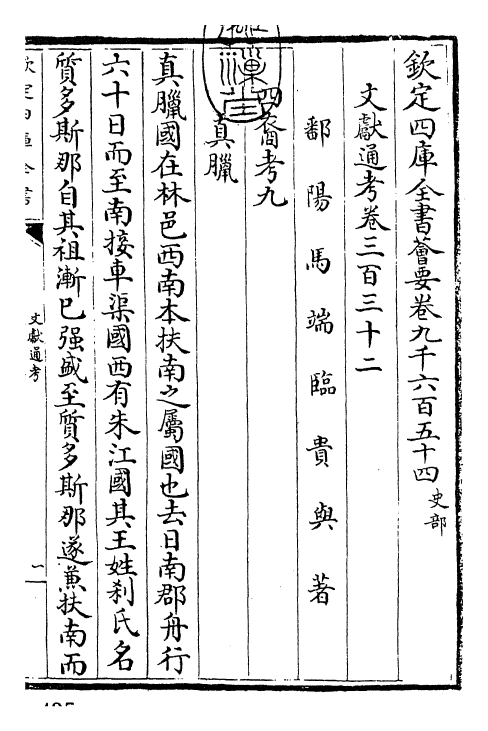 欽定四庫全書薈要卷九千六百五十四 史部
文獻通考卷三百三十二
鄱陽馬端臨貴與著
四裔考九
真臘
真臘國在林邑西南本扶南之屬國也去日南郡舟行
六十日而至南接車渠國西有朱江國其王姓刹氏名
質多斯那自其祖漸已强盛至質多斯那遂兼扶南而
欽定四庫全書
文獻通考
一